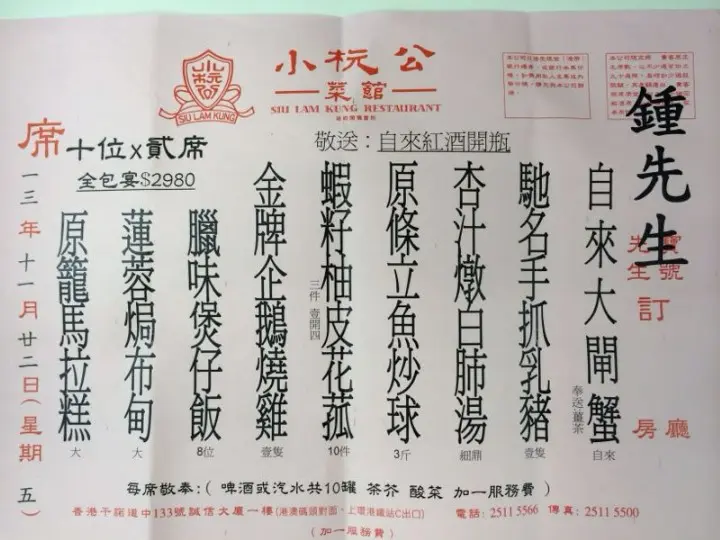 小杬公
菜館
SIU LAM KUNG RESTAURANT
SIU LAM KUNG
敬送：自來紅酒開瓶
席十位x貳席
全包宴$2980
鍾先生
寶號
先生
訂
廳
房
自來大閘蟹
奉送薑茶
自來
馳名手抓乳豬
壹隻
杏汁燉白肺湯
細鼎
原條立魚炒球
3斤
蝦籽柚皮花菰
三件 壹開四
10件
金牌企鵝燒雞
壹隻
臘味煲仔飯
8位
蓮蓉焗布甸
大
原籠馬拉糕
大
一三年十一月廿二日(星期五)
每席敬奉：( 啤酒或汽水共10罐 茶芥 酸菜 加一服務費 )
香港干諾道中133號誠信大廈一樓(港澳碼頭對面，上環港鐵站C出口) 電話：2511 5566 傳真：2511 5500
(加一服務費)